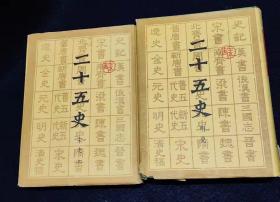 史記 漢書 後漢書 三國志 晉書
宋書 書 梁書 陳書 魏書
北齊 隋書
二十五史
舊唐書 新唐書 舊五代史 新五代史 宋史
遼史 金史 元史 明史 清史稿
史記 漢書 後漢書 三國志 晉書
宋書 書 梁書 陳書 魏書
北齊 隋書
二十五史
舊唐書 新唐書 舊五代史 新五代史 宋史
遼史 金史 元史 明史 清史稿